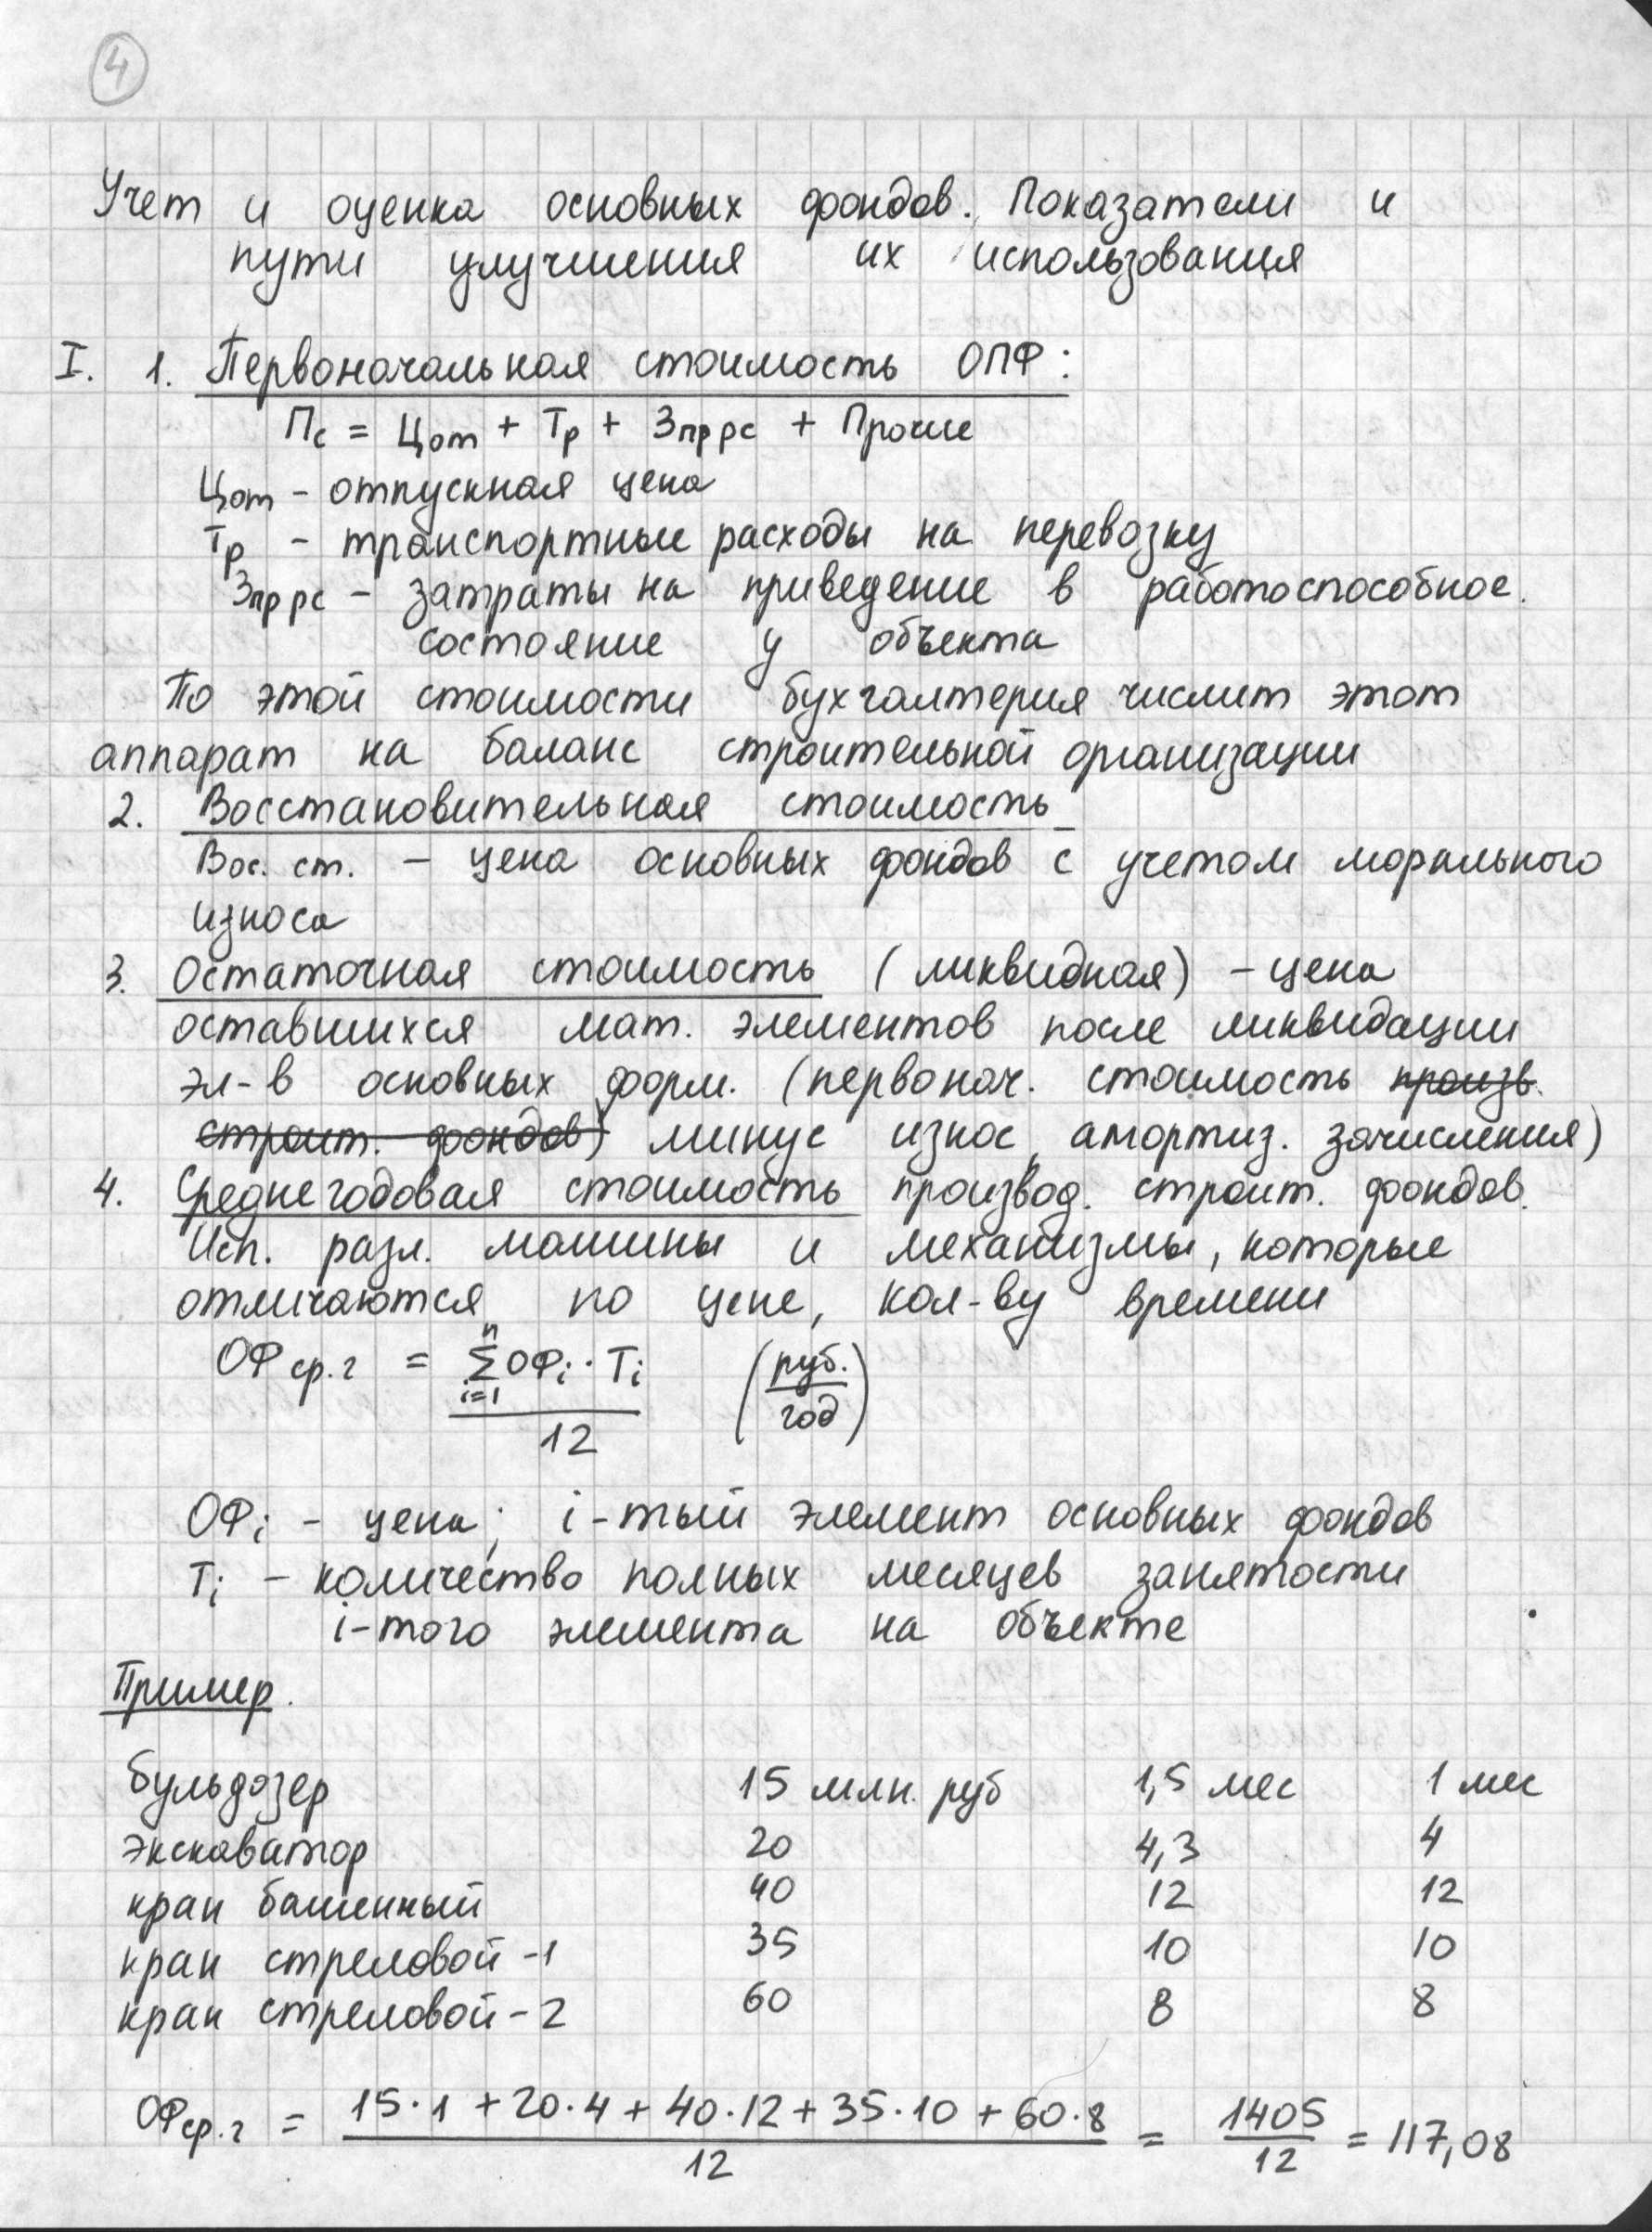 4
Учет и оценка основных фондов. Показатели и
пути улучшения их использования
I. 1. Первоначальная стоимость ОПФ:
Пс = Цот + Тр + Зпр рс + Прочие
Цот - отпускная цена
Тр - транспортные расходы на перевозку
Зпр рс - затраты на приведение в работоспособное.
состояние у объекта
По этой стоимости бухгалтерия числит этот
аппарат на баланс строительной организации
2. Восстановительная стоимость
Вос. ст. - цена основных фондов с учетом морального
износа
3. Остаточная стоимость (ликвидная) - цена
оставшихся мат. элементов после ликвидации
эл-в основных форм. (первонач. стоимость произв.
строит. фондов) минус износ, амортиз. зачисления)
4. Среднегодовая стоимость производ. строит. фондов.
Исп. разл. машины и механизмы, которые
отличаются по цене, кол-ву времени
ОФ ср.г = n Σ i=1 ОФi · Ti / 12 (руб./год)
ОФi - цена; i-тый элемент основных фондов
Ti - количество полных месяцев занятости
i-того элемента на объекте
Пример.
бульдозер 15 млн. руб 1,5 мес 1 мес
экскаватор 20 4,3 4
кран башенный 40 12 12
кран стреловой-1 35 10 10
кран стреловой-2 60 8 8
ОФср.г = 15·1 + 20·4 + 40·12 + 35·10 + 60·8 / 12 = 1405 / 12 = 117,08